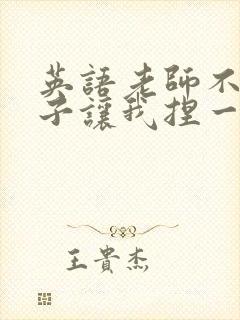 英語老師不
子讓我捏一
王貴杰